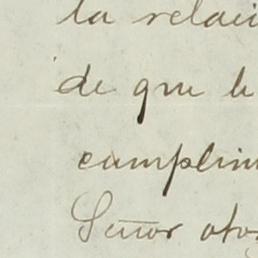 la relaci
de que le
cumplim
Señor otor